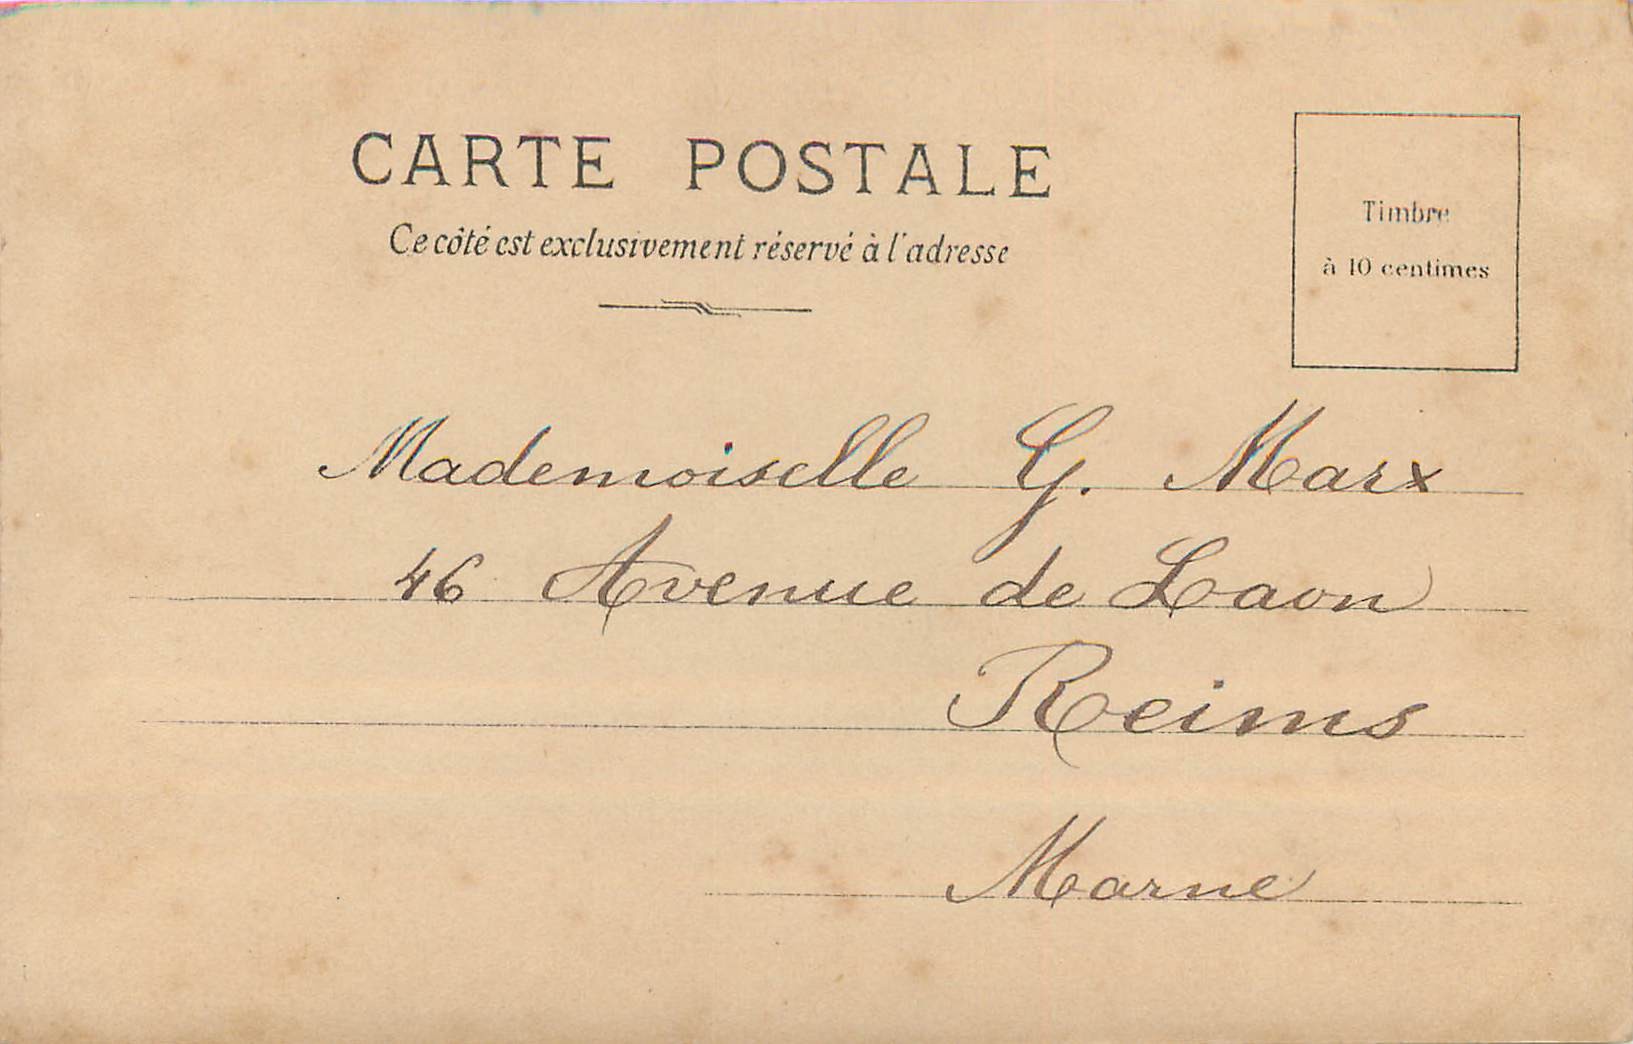 CARTE POSTALE
Ce côté est exclusivement réservé à l'adresse
Timbre
à 10 centimes
Mademoiselle G. Marx
46 Avenue de Laon
Reims
Marne